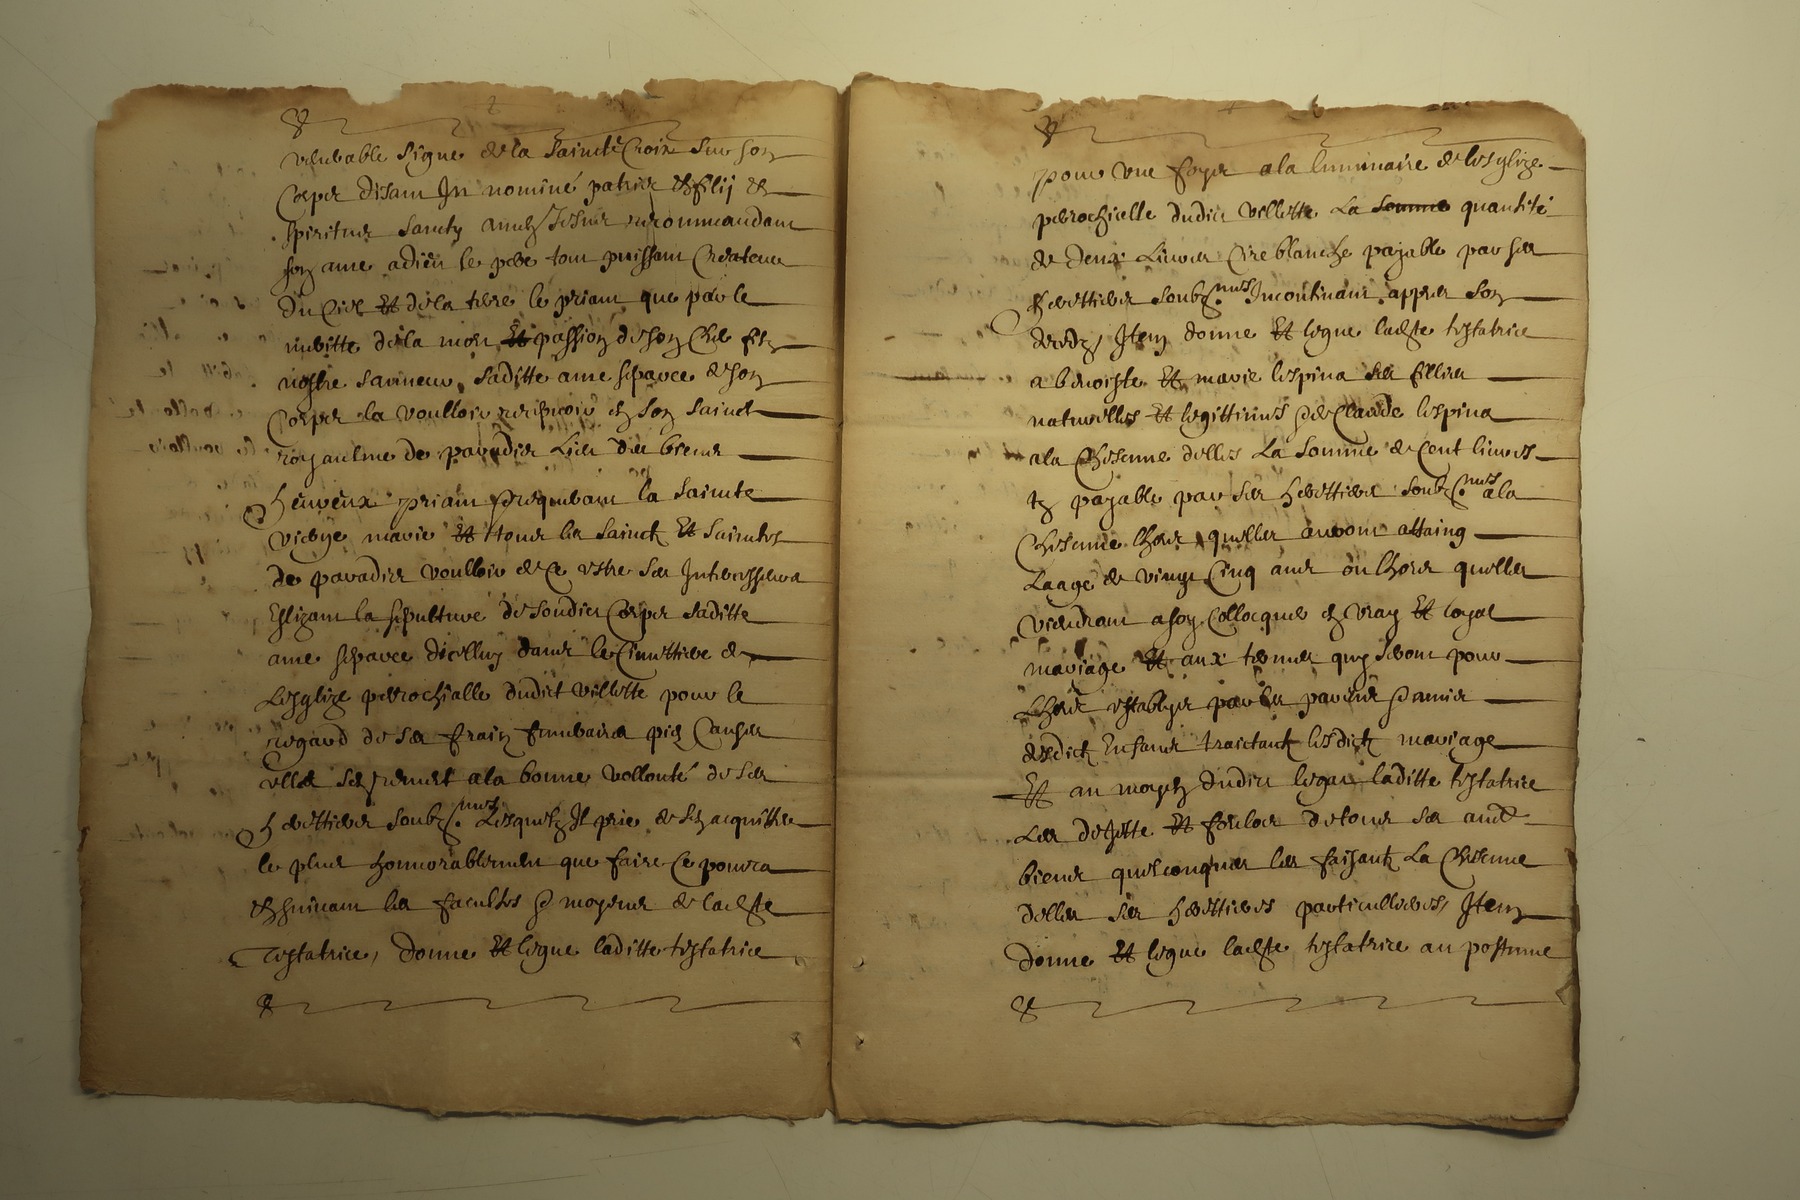 venerable signe de la Saincte Croix sur son
Corps disant In nominé patris et filij et
spiritus sancty amen Jesus recommandant
son ame a dieu le pere tout puissant Createur
du Ciel Et de la terre le priant que par le
meritte de la mort Et passion de son Cher filz
nostre sauveur, saditte ame separee de son
Corps la voulloir recepvoir en son sainct
royaulme de paradis Lieu des biens
heureux priant et requerant la saincte
vierge marie Et tous les sainctz Et sainctes
de paradis voulloir de ce estre ses Intercesseurs
Eslizant la sepulture de sondict Corps saditte
ame separee dicelluy dans le Cimettiere de
Lesglize perrochialle dudict villette pour le
regard de ses fraiz funebraires piez Causes
elle sen remect a la bonne vollonté de ses
herettiers soubz nnes Lesquelz Il prie de sen acquitter
le plus honnorablement que faire ce pourra
et suivant les facultes et moyens de ladte
Testatrice, donne Et legue laditte testatrice
pour une foys a la luminaire de lesglize
perrochielle dudict villette La somme quantité
de deux Livres Cire blanche payable par ses
herettiers soubz nnes Incontinant appres son
deces, Item donne Et legue ladte testatrice
a benoiste Et marie lespina ses filles
naturelles Et legittimes et de Claude lespina
a la Chescune delles La somme de Cent livres
tz payable par ses herettiers soubz nnes a la
Chescune lhors quelles auront attaing
Laage de vingt Cinq ans ou lhors quelles
viendront a soy Collocquer en vray Et loyal
mariage Et aux termes quy seront pour
Lhors establys par les parens et amis
desdictz Enfans traictantz lesdictz mariage
Et au moyen dudict legat laditte testatrice
Les dejette Et forclos de tous ses aultres
biens quelconques les faisant La Chescune
delles ses herettieres particullieres, Item
donne Et legue ladte testatrice au postume